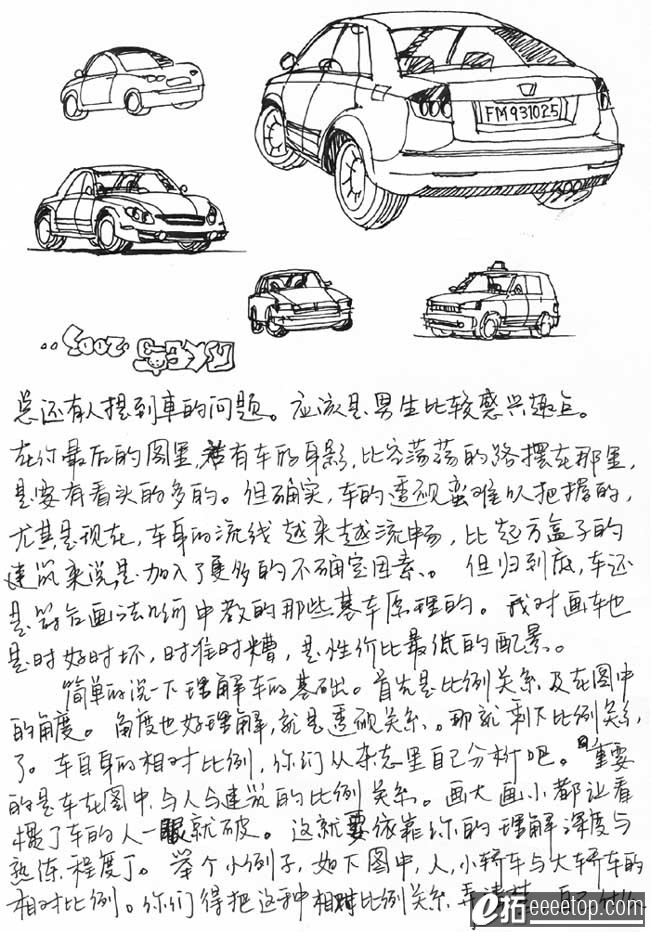 FM931025
..2005
总还有人提到車的问题。应该是男生比较感兴趣点。
在你最后的图里,若有车的身影,比空荡荡的路摆在那里,
是要有看头的多的。但确实,车的透视蛮难以把握的,
尤其是现在,车身的流线越来越流畅,比起方盒子的
建筑来说是加入了更多的不确定因素。但归到底,车还
是符合画法几何中教的那些基本原理的。我对画车也
是时好时坏,时准时糟,是性价比最低的配景。
简单的说一下理解车的基础。首先是比例关系及在图中
的角度。角度也好理解,就是透视关系。那就剩下比例关系
了。车自身的相对比例,你们从杂志里自己分析吧。重要
的是车在图中与人与建筑的比例关系。画大画小都让看
惯了车的人一眼就破。这就要依靠你的理解深度与
熟练程度了。举个小例子,如下图中,人,小轿车与大轿车的
相对比例。你们得把这种相对比例关系弄清楚
e拓 eeeetop.com